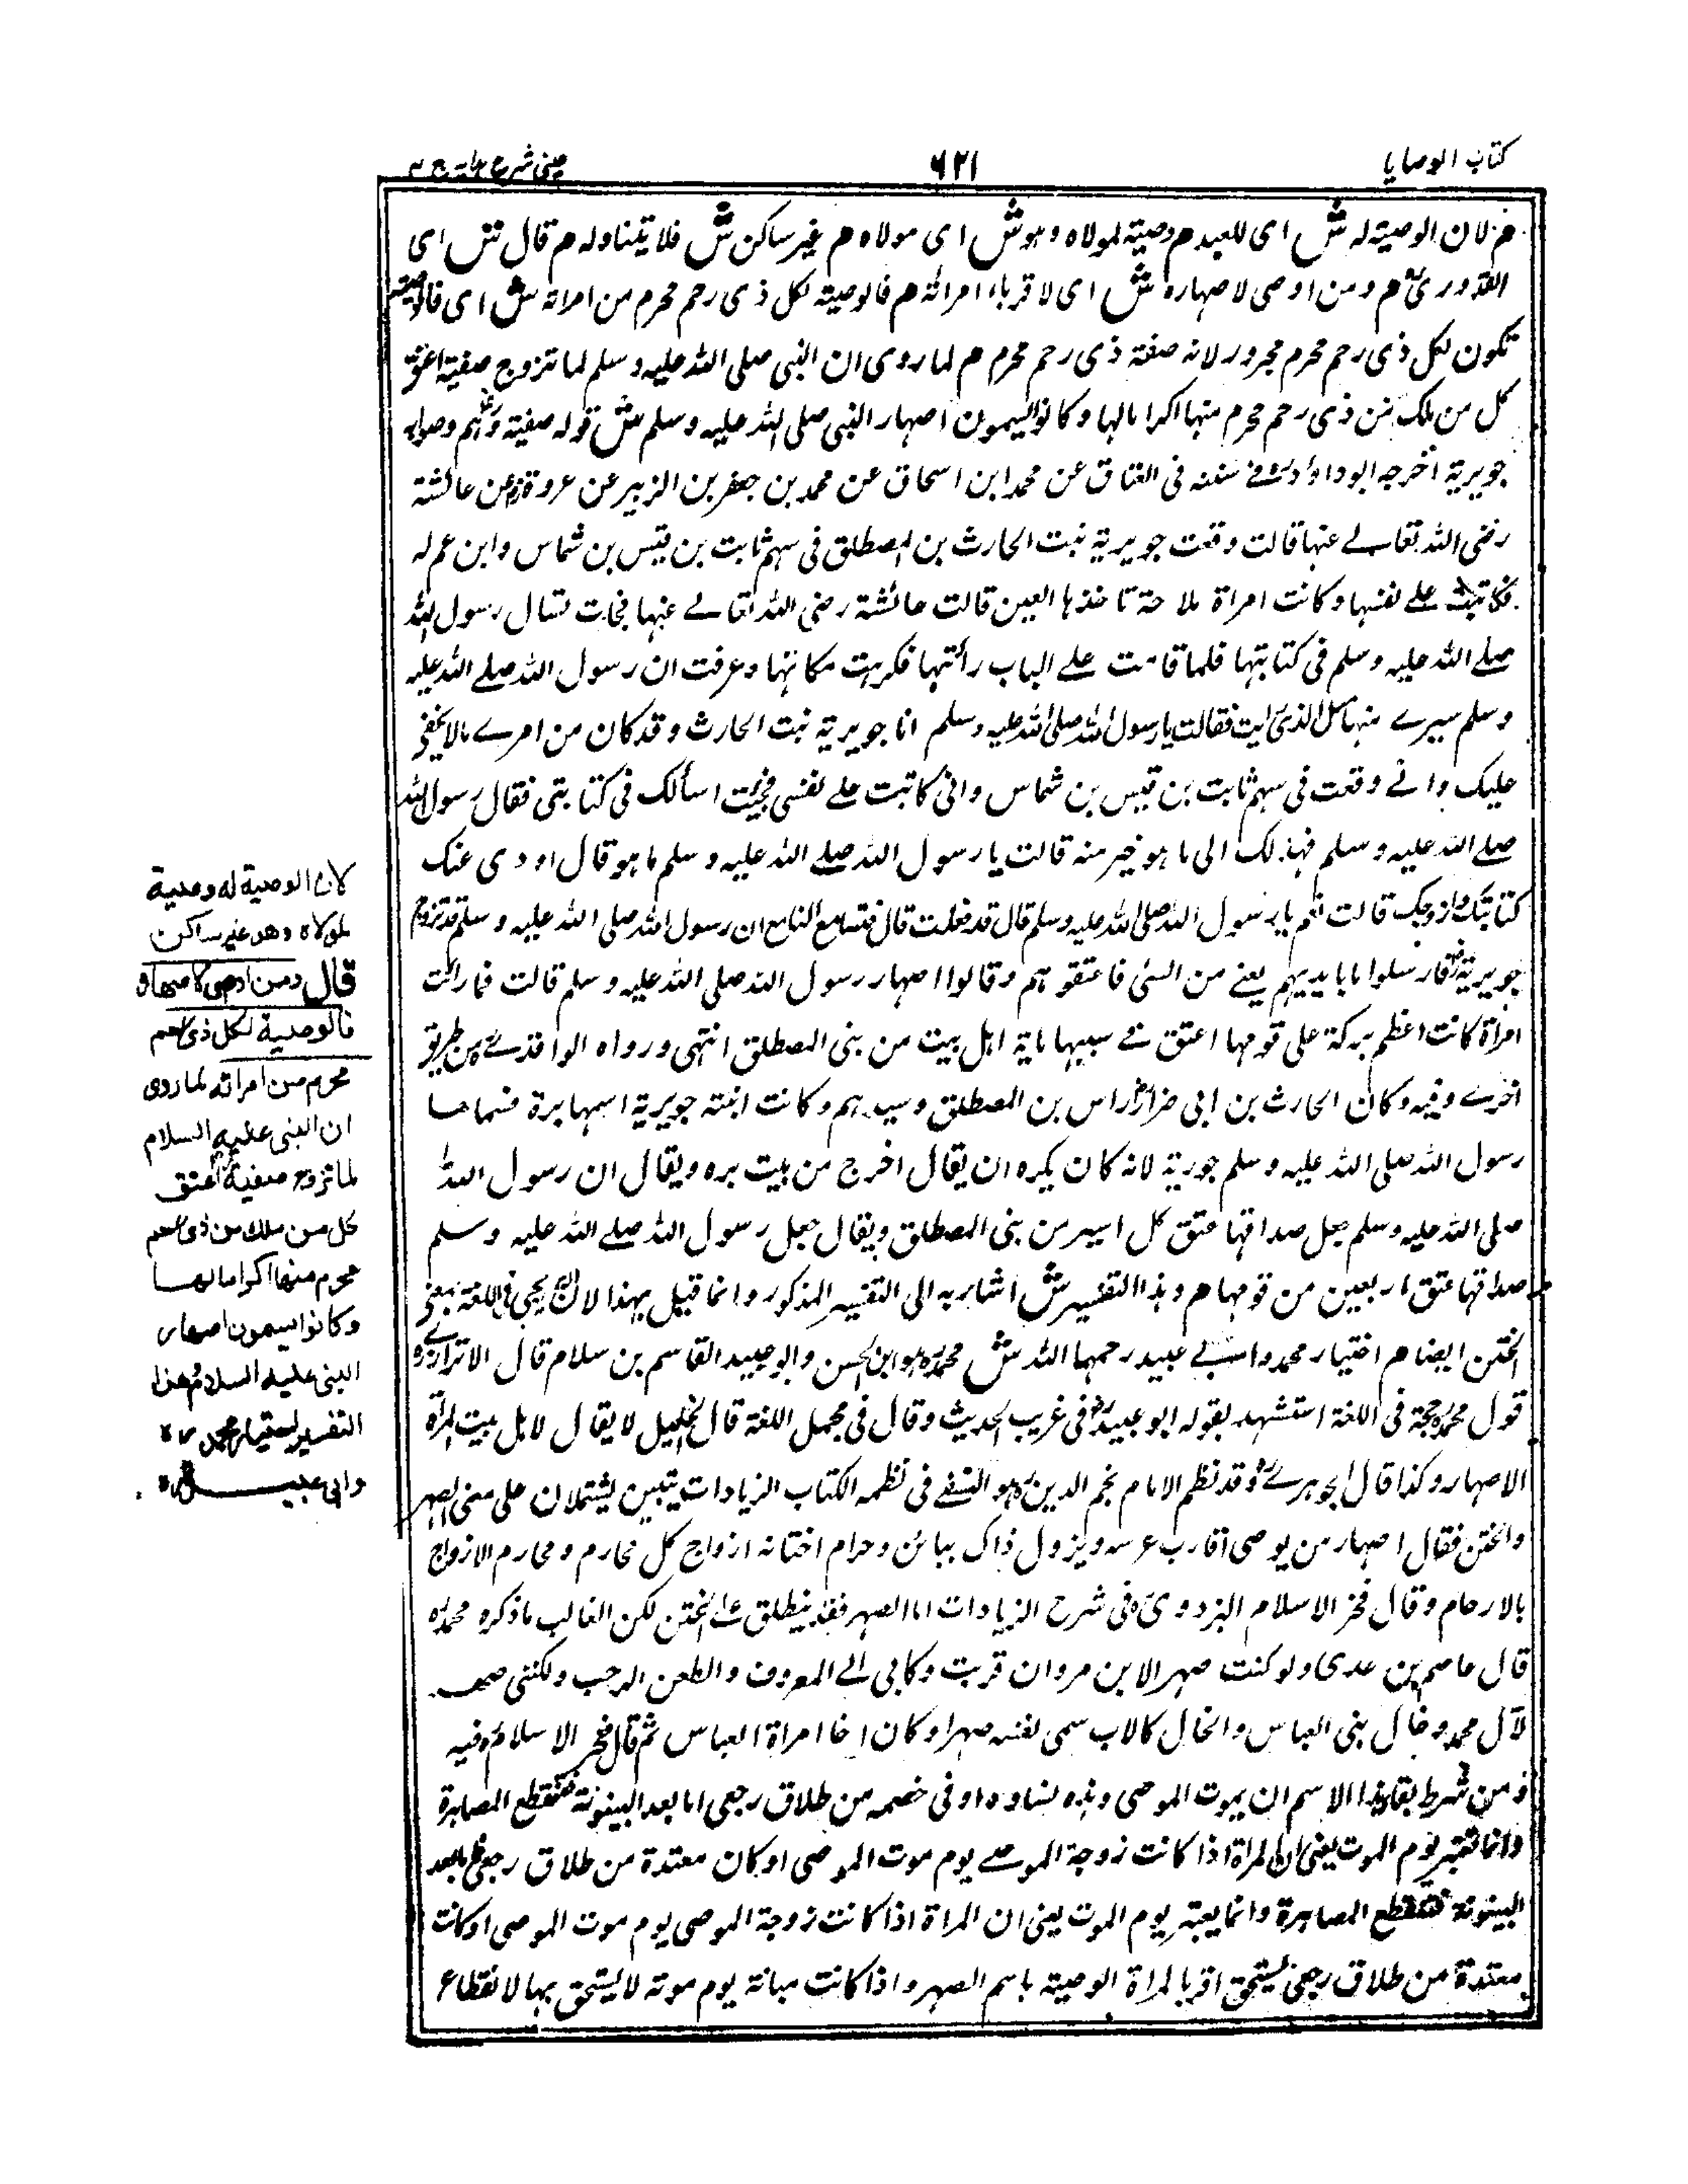 كتاب الوصايا
٦٢١
عينى شرح
م لان الوصية له ش اى للعبد م وصية لمولاه وهو ش اى مولاه م غير ساكن ش فلا يتناوله م قال ش اى
القدورى م ومن اوصى لاصهاره ش اى لاقرباء امرأته م فالوصية لكل ذى رحم محرم من امراته ش اى فالوصية
تكون لكل ذى رحم محرم مجرور لانه صفة ذى رحم محرم م لما روى ان النبى صلى الله عليه وسلم لما تزوج صفية اعتق
كل من ملك من ذى رحم محرم منها اكراما لها وكانوا يسمون اصهار النبى صلى الله عليه وسلم ش قوله صفية وهم وصوابه
جويرية اخرجه ابو داود فى سننه فى العتاق عن محمد ابن اسحاق عن محمد بن جعفر بن الزبير عن عروة عن عائشة
رضى الله تعالى عنها قالت وقعت جويرية بنت الحارث بن المصطلق فى سهم ثابت بن قيس بن شماس وابن عم له
فكاتبت على نفسها وكانت امراة ملاحة تاخذها العين قالت عائشة رضى الله تعالى عنها فجات تسال رسول الله
صلى الله عليه وسلم فى كتابتها فلما قامت على الباب رأتها فكرهت مكانها وعرفت ان رسول الله صلى الله عليه
وسلم سيرى منها مثل الذى رايت فقالت يا رسول الله صلى الله عليه وسلم انا جويرية بنت الحارث وقد كان من امرى مالا يخفى
عليك وانى وقعت فى سهم ثابت بن قيس بن شماس وانى كاتبت على نفسى فجئت اسألك فى كتابتى فقال رسول الله
صلى الله عليه وسلم فهذلك الى ما هو خير منه قالت يا رسول الله صلى الله عليه وسلم ما هو قال اودى عنك
كتابتك وازوجك قالت نعم يا رسول الله صلى الله عليه وسلم قال قد فعلت قال فتسامع الناس ان رسول الله صلى الله عليه وسلم قد تزوج
جويرية فارسلوا ما بايديهم يعنى من السبى فاعتقوهم وقالوا اصهار رسول الله صلى الله عليه وسلم قالت فما رائت
امراة كانت اعظم بركة على قومها اعتق فى سببها ماية اهل بيت من بنى المصطلق انتهى ورواه الواقدى من طريق
اخرى وفيه وكان الحارث بن ابى ضرار راس بن المصطلق وسيدهم وكانت ابنته جويرية اسمها برة فسماها
رسول الله صلى الله عليه وسلم جورية لانه كان يكره ان يقال اخرج من بيت بره ويقال ان رسول الله
صلى الله عليه وسلم جعل صداقها عتق كل اسير من بنى المصطلق ويقال جعل رسول الله صلى الله عليه وسلم
صداقها عتق اربعين من قومها م وهذا التفسير ش اشار به الى التفسير المذكور وانما قيل بهذا لان يجئ فى اللغة بمعنى
الختن ايضا م اختيار محمد وابى عبيد رحمهما الله ش محمد هو ابن الحسن وابو عبيد القاسم بن سلام قال الاترازى
قول محمد حجة فى اللغة استشهد بقوله ابو عبيد فى غريب الحديث وقال فى مجمل اللغة قال الخليل لا يقال لاهل بيت المرأة
الاصهار وكذا قال الجوهرى وقد نظم الامام نجم الدين هو النسفى فى نظمه الكتاب الزيادات بيتين يشتملان على معنى الصهر
والختن فقال اصهار من يوصى اقارب عرسه ويزول ذاك ببائن وحرام اختانه ازواج كل محارم ومحارم الازواج
بالارحام وقال فخر الاسلام البزدوى فى شرح الزيادات اما الصهر فقد ينطلق على الختن لكن الغالب ما ذكره محمد
قال عاصم بن عدى ولو كنت صهرا لابن مروان قربت وكابى الى المعروف والطعن الرحب ولكننى صهر
لآل محمد وخال بنى العباس والخال كالاب سمى نفسه صهرا وكان اخا امراة العباس ثم قال فخر الاسلام وفيه
ومن شرط بقاء هذا الاسم ان يموت الموصى وهذه نساوه او فى خصمه من طلاق رجعى اما بعد البينونة فتنقطع المصاهرة
وانما يعتبر يوم الموت يعنى ان المراة اذا كانت زوجة الموصى يوم موت الموصى او كان معتدة من طلاق رجعى اما بعد
البينونة فتنقطع المصاهرة وانما يعتبر يوم الموت يعنى ان المراة اذا كانت زوجة الموصى يوم موت الموصى او كانت
معتدة من طلاق رجعى يستحق اقربا المراة الوصية باسم الصهر واذا كانت مبانة يوم موته لا يستحق بها لانقطاع
لان الوصية له وصية
لمولاه وهو غير ساكن
قال ومن اوصى لاصهاره
فالوصية لكل ذى رحم
محرم من امراته لما روى
ان النبى عليه السلام
لما تزوج صفية اعتق
كل من ملك من ذى رحم
محرم منها اكراما لها
وكانوا يسمون اصهار
النبى عليه السلام وهذا
التفسير اختيار محمد
وابى عبيد